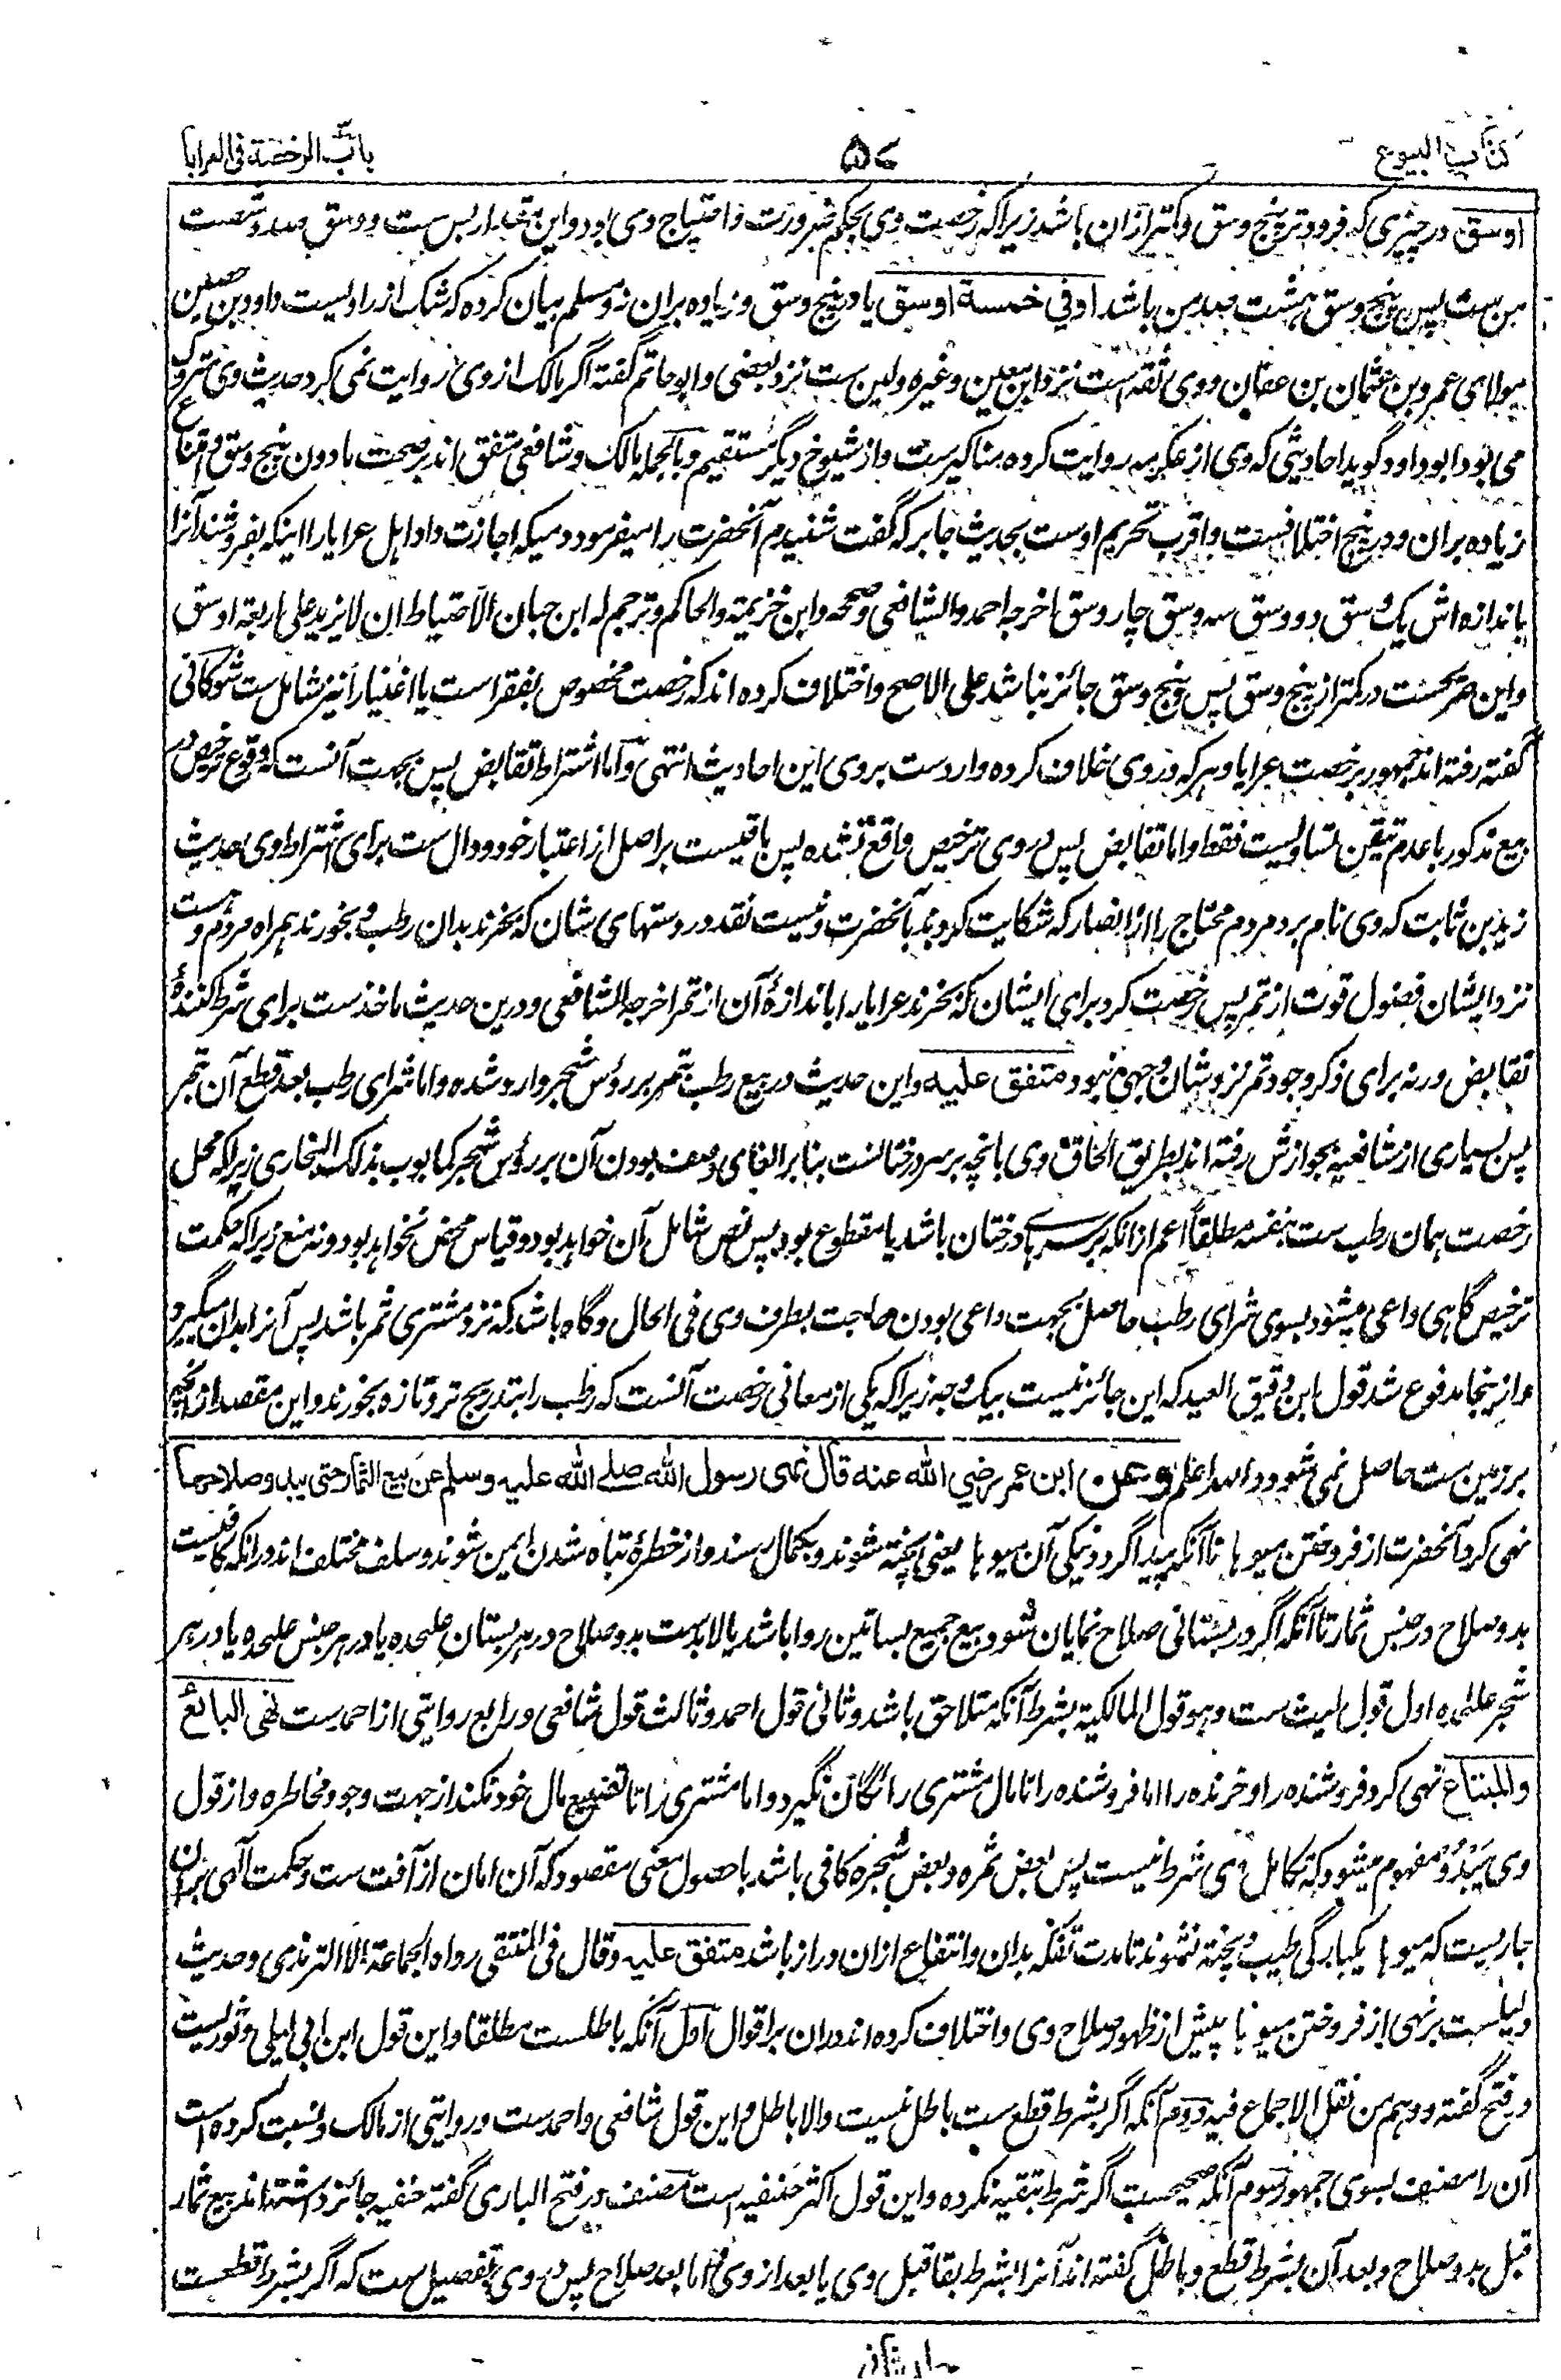 کتاب البیوع
۵۷
باب الرخصة فی العرایا
اوسق در چیزی که فروتر پنج وسق و کمتر ازان باشد زیرا که رخصت وی بحکم ضرورت و احتیاج وی بود و این مقدار بس ست و وسق صد و شصت
من ست پس پنج وسق هشت صد من باشد اوفي خمسة اوسق یا در پنج وسق و زیاده بران نه و مسلم بیان کرده که شک از راویست داود بن حصین
مولای عمرو بن عثمان بن عفان و وی ثقه است نزد ابن معین و غیره ولین ست نزد بعضی و ابو حاتم گفته اگر مالک از وی روایت نمی کرد حدیث وی متروک
می بود ابو داود گوید احادیثی که وی از عکرمه روایت کرده مناکیرست و از شیوخ دیگر مستقیم و بالجمله مالک و شافعی متفق اند بر صحت مادون پنج وسق و امتناع
زیاده بران و در پنج اختلافست و اقرب تحریم اوست بحدیث جابر که گفت شنیدم آنحضرت را میفرمود دمیکه اجازت داد اهل عرایا را اینکه بفروشند آنرا
باندازه اش یک وسق دو وسق سه وسق چار وسق اخرجه احمد والشافعی وصححه وابن خزیمة والحاکم وترجم له ابن حبان الاحتیاط ان لا یزید علی اربعة اوسق
و این صریحست در کمتر از پنج وسق پس پنج وسق جائز نباشد علی الاصح و اختلاف کرده اند که رخصت مخصوص بفقراست یا اغنیا را نیز شامل ست شوکانی
گفته رفته اند جمهور برخصت عرایا و هر که در وی خلاف کرده واردست بر وی این احادیث انتهی و اما اشتراط تقابض پس بجهت آنست که وقوع ترخیص در
بیع مذکور با عدم تیقن تساویست فقط و اما تقابض پس در وی ترخیص واقع نشده پس باقیست بر اصل از اعتبار خود و دال ست برای اشتراط وی حدیث
زید بن ثابت که وی نام برد مردم محتاج را از انصار که شکایت کردند بآنحضرت و نیست نقد در دستهای شان که بخرند بدان رطب و بخورند همراه مردم و هست
نزد ایشان فضول قوت از تمر پس رخصت کرد برای ایشان که بخرند عرایا را باندازهٔ آن از تمر اخرجه الشافعی و درین حدیث ماخذست برای شرط کنندهٔ
تقابض ورنه برای ذکر وجود تمر نزد شان وجهی نبود متفق علیه و این حدیث در بیع رطب بتمر بر رؤس شجر وارد شده و اما شرای رطب بعد قطع آن بتمر
پس بسیاری از شافعیه بجوازش رفته اند بطریق الحاق وی بانچه بر سر درختانست بنابر الغای وصف بودن آن بر رؤس شجر کما بوب بذلک البخاری زیرا که محل
رخصت همان رطب ست بنفسه مطلقاً اعم ازانکه بر سرهای درختان باشد یا مقطوع بود پس نص شامل آن خواهد بود و قیاس محض نخواهد بود و نه منع زیرا که حکمت
ترخیص گاهی داعی میشود بسوی شرای رطب حاصل بجهت داعی بودن حاجت بطرف وی فی الحال و گاه باشد که نزد مشتری تمر باشد پس آنرا بدان میگیرد
و ازینجا مدفوع شد قول ابن دقیق العید که این جائز نیست بیک وجه زیرا که یکی از معانی رخصت آنست که رطب را بتدریج تر و تازه بخورند و این مقصد از انچه
بر زمین ست حاصل نمی شود و الله اعلم وعن ابن عمر رضي الله عنه قال نهى رسول الله صلے الله عليه وسلم عن بيع الثمار حتى يبدو صلاحها
نهی کرد آنحضرت از فروختن میوها تا آنکه پیدا گردد نیکی آن میوها یعنی پخته شوند و بکمال رسند و از خطرهٔ تباه شدن ایمن شوند و سلف مختلف اند درانکه کافیست
بدو صلاح در جنس ثمار تا آنکه اگر در بستانی صلاح نمایان شود بیع جمیع بساتین روا باشد یا لابدست بدو صلاح در هر بستان علیحده یا در هر جنس علیحده یا در هر
شجر علیحده اول قول لیث ست و هو قول المالکیة بشرط آنکه متلاحق باشد و ثانی قول احمد و ثالث قول شافعی و رابع روایتی از احمدست نهى البائع
والمبتاع نهی کرد فروشنده را و خرنده را اما فروشنده را تا مال مشتری رائگان نگیرد و اما مشتری را تا تضییع مال خود نکند از جهت وجود مخاطره و از قول
وی یَبْدُوَ مفهوم میشود که تکامل وی شرط نیست پس بعض ثمره و بعض شجره کافی باشد با حصول معنی مقصود که آن امان از آفت ست و حکمت آلهی بران
جاریست که میوها یکبارگی طیب و پخته نشوند تا مدت تفکه بدان و انتفاع ازان دراز باشد متفق علیه وقال فی المنتقی رواه الجماعة الا الترمذی و حدیث
دلیلست بر نهی از فروختن میوها پیش از ظهور صلاح وی و اختلاف کرده اند دران بر اقوال اول آنکه باطلست مطلقا و این قول ابن ابی لیلی و ثوریست
در فتح گفته و وهم من نقل الاجماع فیه دوم آنکه اگر بشرط قطع ست باطل نیست والا باطل و این قول شافعی و احمدست و روایتی از مالک و نسبت کرده است
آن را مصنف بسوی جمهور سوم آنکه صحیحست اگر شرط تبقیه نکرده و این قول اکثر حنفیه است مصنف در فتح الباری گفته حنفیه جائز داشته اند بیع ثمار
قبل بدو صلاح و بعد آن بشرط قطع و باطل گفته اند آنرا بشرط بقا قبل وی یا بعد از وی اما بعد صلاح پس در وی تفصیل ست که اگر بشرط قطعست